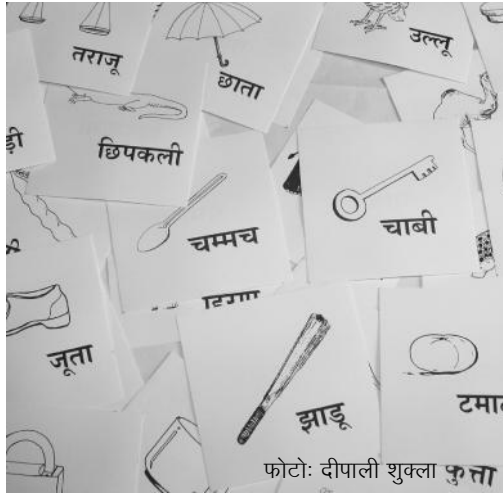 तराजू
छाता
उल्लू
छिपकली
चम्मच
चाबी
जूता
झाडू
फोटोः दीपाली शुक्ला
कुत्ता